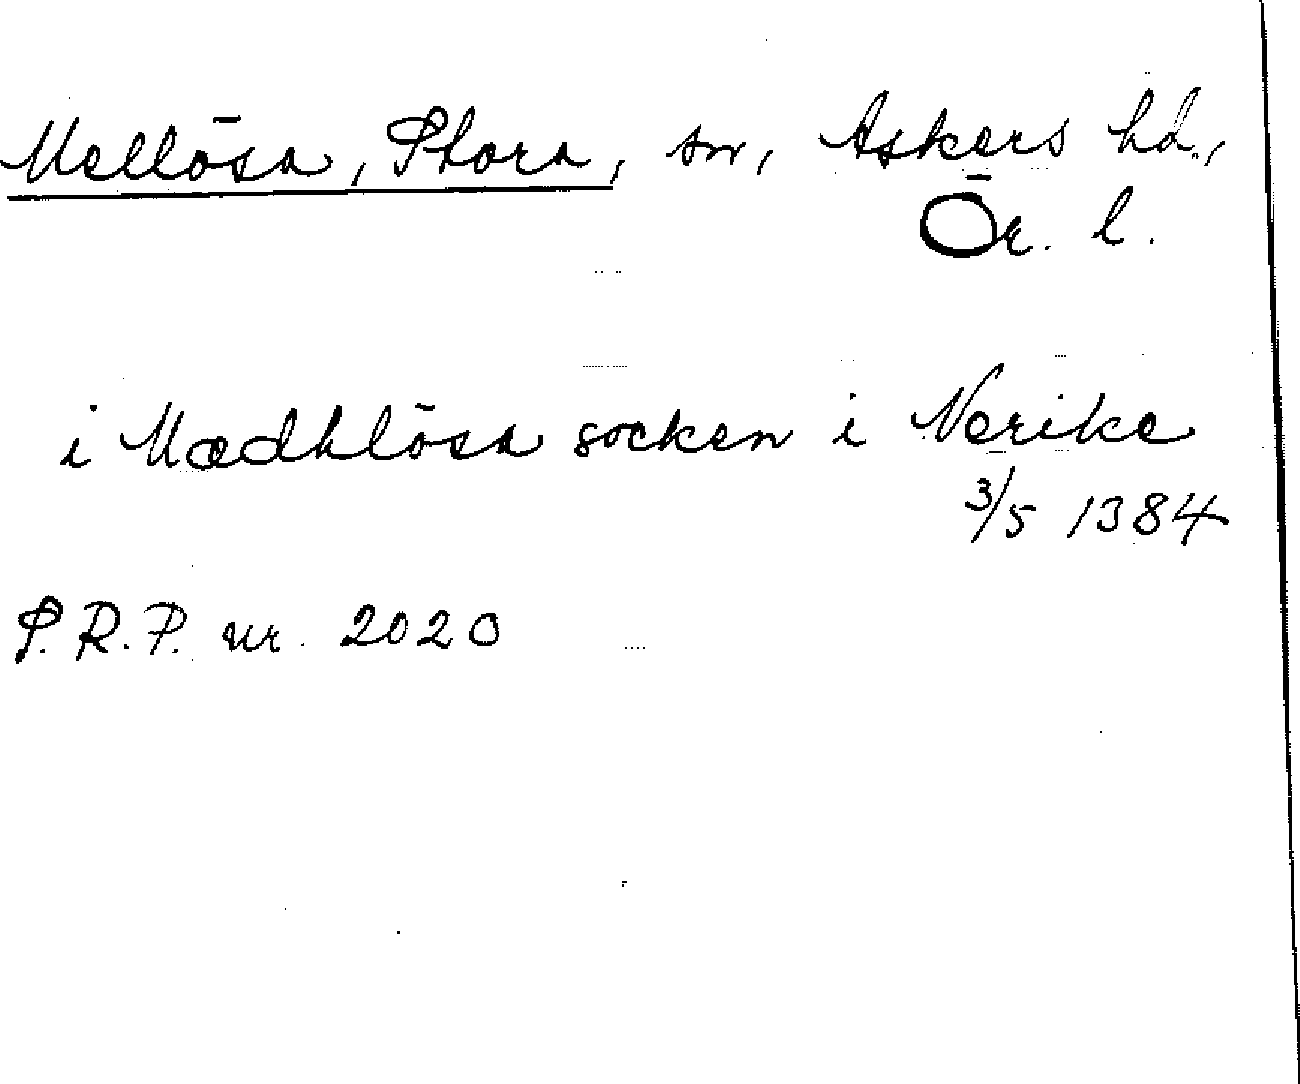 Mellösa, Stora, sn, Askers hd.,
Ör. l.
i Mædhlösa socken i Nerike
3/5 1384
S.R.P. nr. 2020